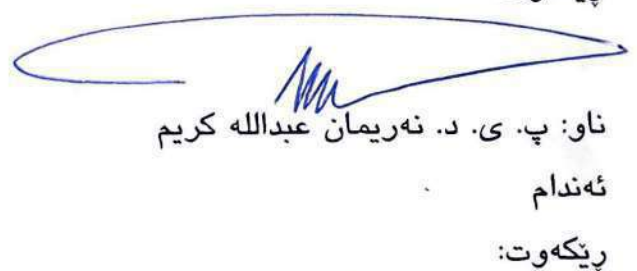 ناو: پ. ی. د. نەریمان عبداللە کریم
ئەندام
ڕێکەوت: